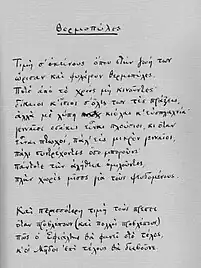 Θερμοπύλες
Τιμή σ' εκείνους όπου στην ζωή των
ώρισαν και φυλάγουν Θερμοπύλες.
Ποτέ από το χρέος μη κινούντες·
δίκαιοι κ' ίσιοι σ' όλες των τες πράξεις,
αλλά με λύπη κιόλα κ' ευσπλαχνία·
γενναίοι οσάκις είναι πλούσιοι, κι όταν
είναι πτωχοί, πάλ' εις μικρόν γενναίοι,
πάλι συντρέχοντες όσο μπορούνε·
πάντοτε την αλήθεια ομιλούντες,
πλην χωρίς μίσος για τους ψευδομένους.
Και περισσότερη τιμή τους πρέπει
όταν προβλέπουν (και πολλοί προβλέπουν)
πως ο Εφιάλτης θα φανεί στο τέλος,
κ' οι Μήδοι επί τέλους θα διαβούνε.